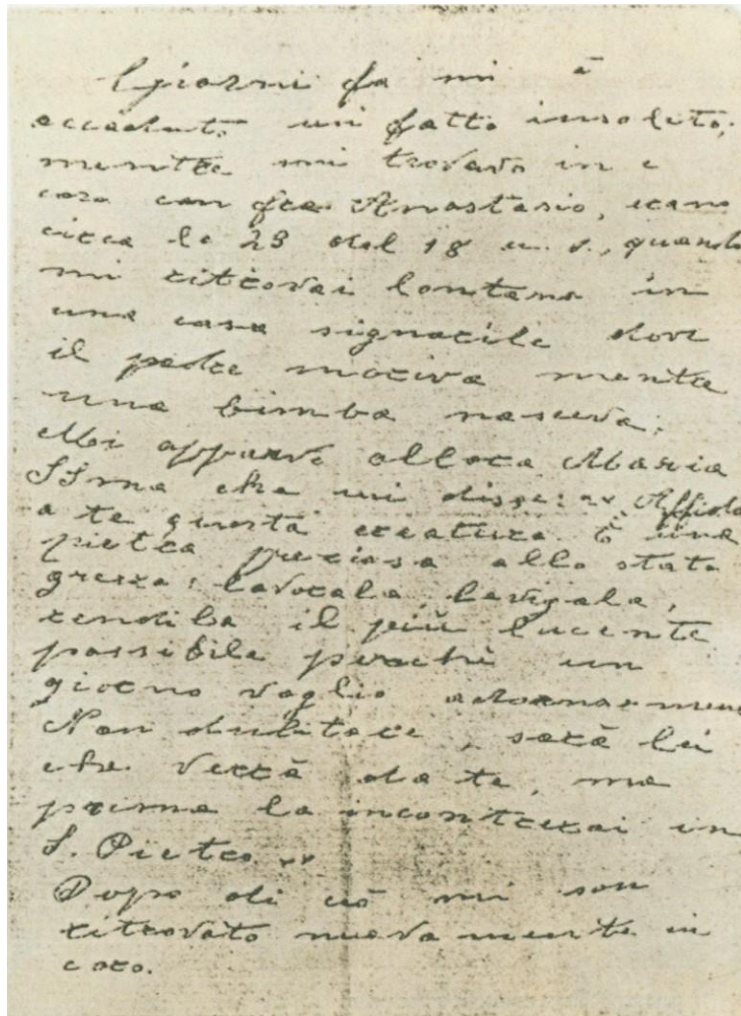 Giorni fa mi è
accaduto un fatto insolito:
mentre mi trovavo in
coro con fra Anastasio, erano
circa le 23 del 18 u. s., quando
mi ritrovai lontano in
una casa signorile dove
il padre moriva mentre
una bimba nasceva.
Mi apparve allora Maria
SSma che mi disse: " Affido
a te questa creatura. È una
pietra preziosa allo stato
grezzo: lavorala, levigala,
rendila il più lucente
possibile perché un
giorno voglio adornarmene
Non dubitare, sarà lei
che verrà da te, ma
prima la incontrerai in
S. Pietro "
Dopo di ciò mi son
ritrovato nuovamente in
coro.